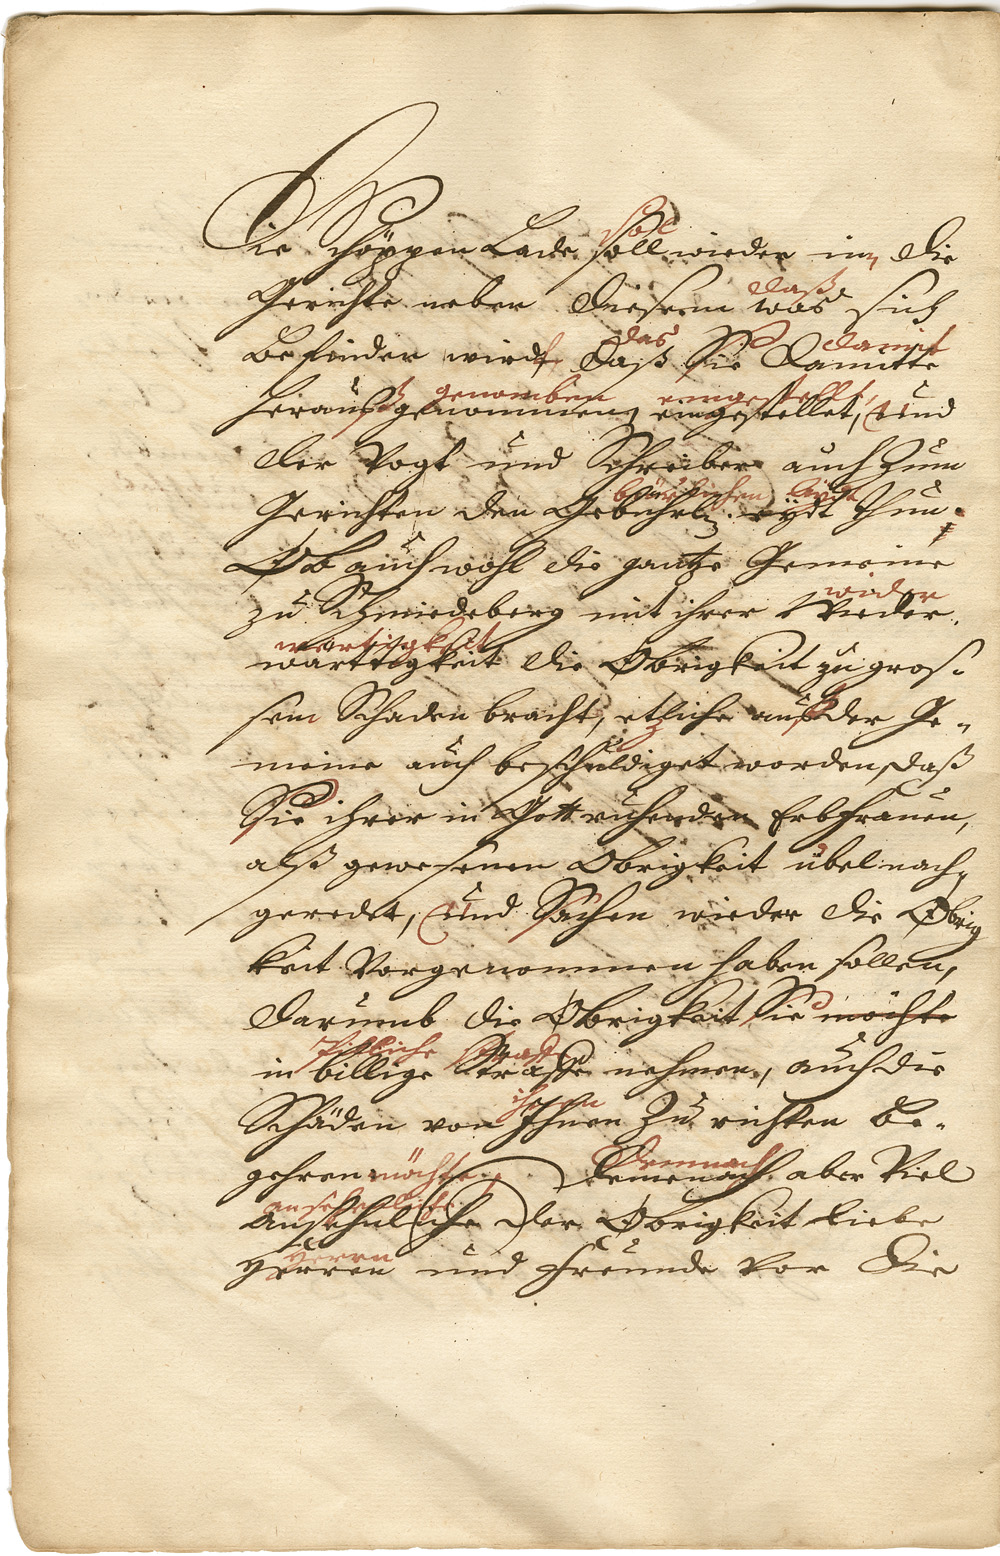 Die Schöppen Lade soll wieder inn die
sol
Gerichte neben diesem was sich
daß
befinden wirdt daß Sie damitte
das damit
heraußgenommen, eingestellet, und
genomben eingestellt,
der Vogt und Schreiber auch Zum
Gerichten den Gebührl. eydt thun.
bührlichen Eydt
Ob auch wohl die gantze Gemeine
zu Schmiedeberg mit ihrer Wieder-
wider
warttigkeit die Obrigkeit zu gros-
wertigkeit
sem Schaden bracht, etzliche auß der Ge-
meine auch beschuldiget worden, daß
Sie ihrer in Gott ruhenden Erbfrauen,
alß gewesenen Obrigkeit übel nach-
geredet, und Sachen wieder die Obrig
keit Vorgenommen haben sollen,
darumb die Obrigkeit Sie möchte
in billige Straffe nehmen, auch die
billiche straffe
Schäden von Ihnen Zu richten be-
ihnen
gehren möchte, Demenach aber Viel
Demnach
ansehnliche der Obrigkeit liebe
ansehenliche
Herren und Freunde vor die
Herrn